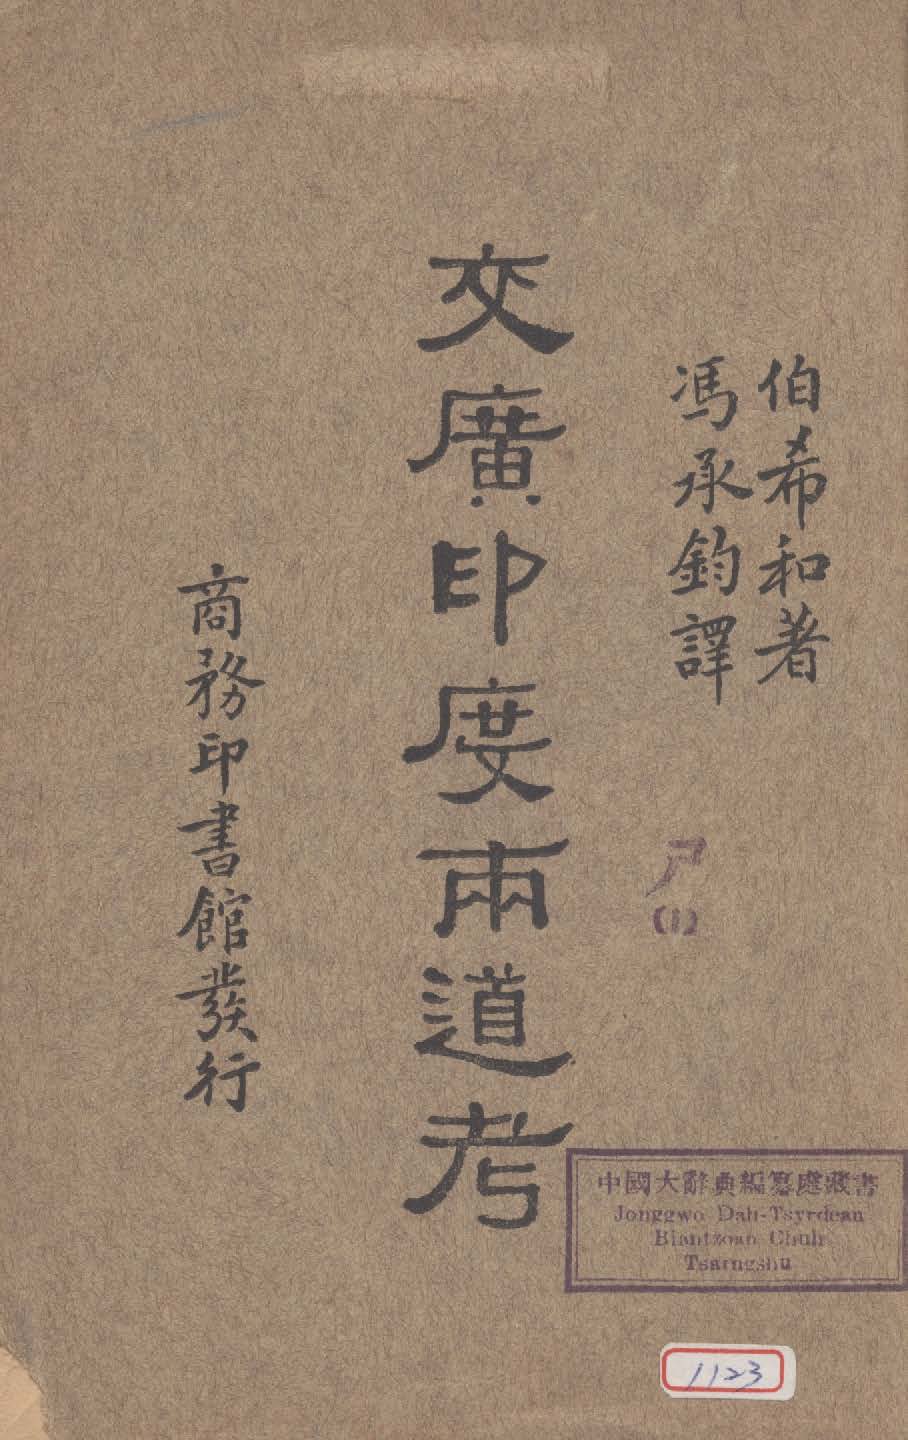 伯希和著
馮承鈞譯
交廣印度兩道考
商務印書館發行
尸
(1)
中國大辭典編纂處藏書
Jonggwo Dah-Tsyrdean
Biantzoan Chuh
Tsarngshu
1123